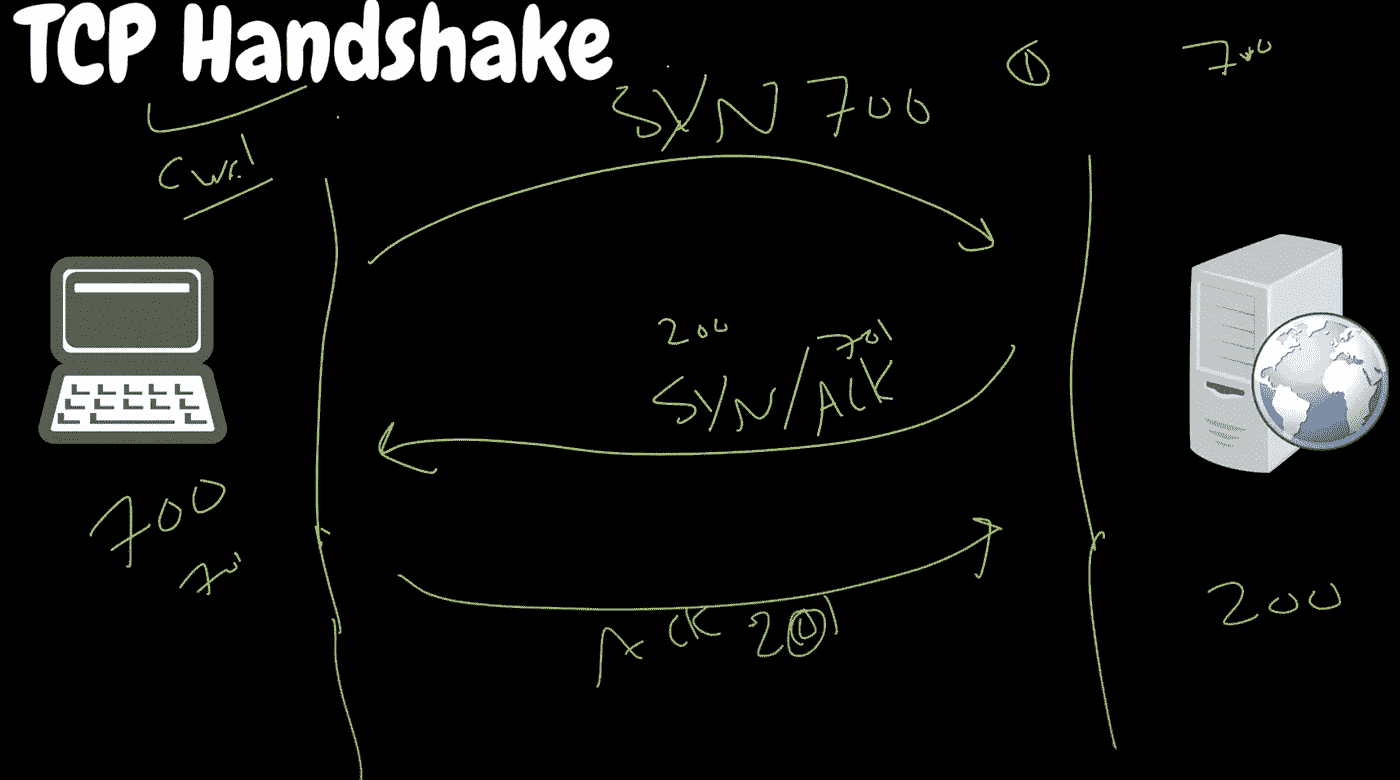 TCP Handshake
SYN 700
1
700
200 701
SYN/ACK
700
701
200
ACK 201